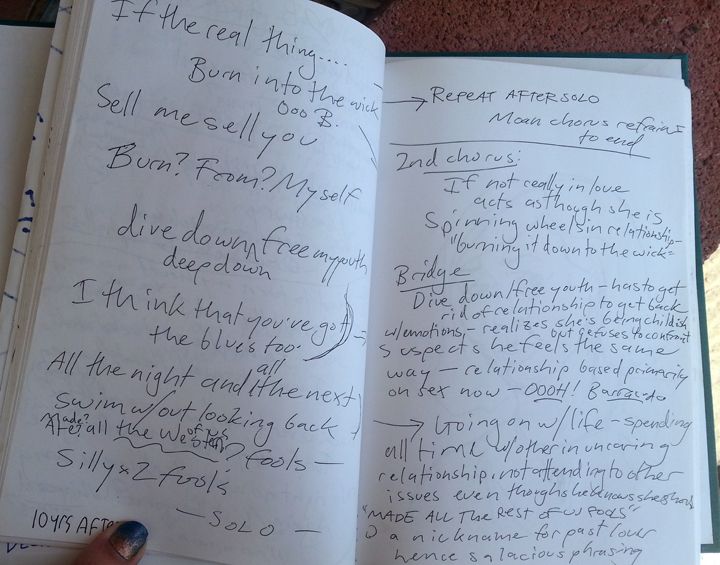 If the real thing....
Burn into the wick
ooo B.
Sell me sell you
Burn? From? Myself
dive down free my youth
deep down
I think that you've got
the blues too.
All the night and all the next
swim w/out looking back
Made?
After all the We of us? fools —
Silly x 2 fools
— SOLO —
10 yrs AFTE
→ REPEAT AFTER SOLO
Moan chorus refrain
to end
2nd chorus:
If not really in love
acts as though she is
Spinning wheels in relationship —
"burning it down to the wick"
Bridge
Dive down/free youth — has to get
rid of relationship to get back
w/emotions, — realizes she's being childish
but refuses to confront
suspects he feels the same
way — relationship based primarily
on sex now — OOOH! Barracuda
→ Going on w/ life — spending
all time w/other in uncaring
relationship, not attending to other
issues even though she knows she should
"MADE ALL THE REST OF US FOOLS"
a nickname for past lover
hence salacious phrasing